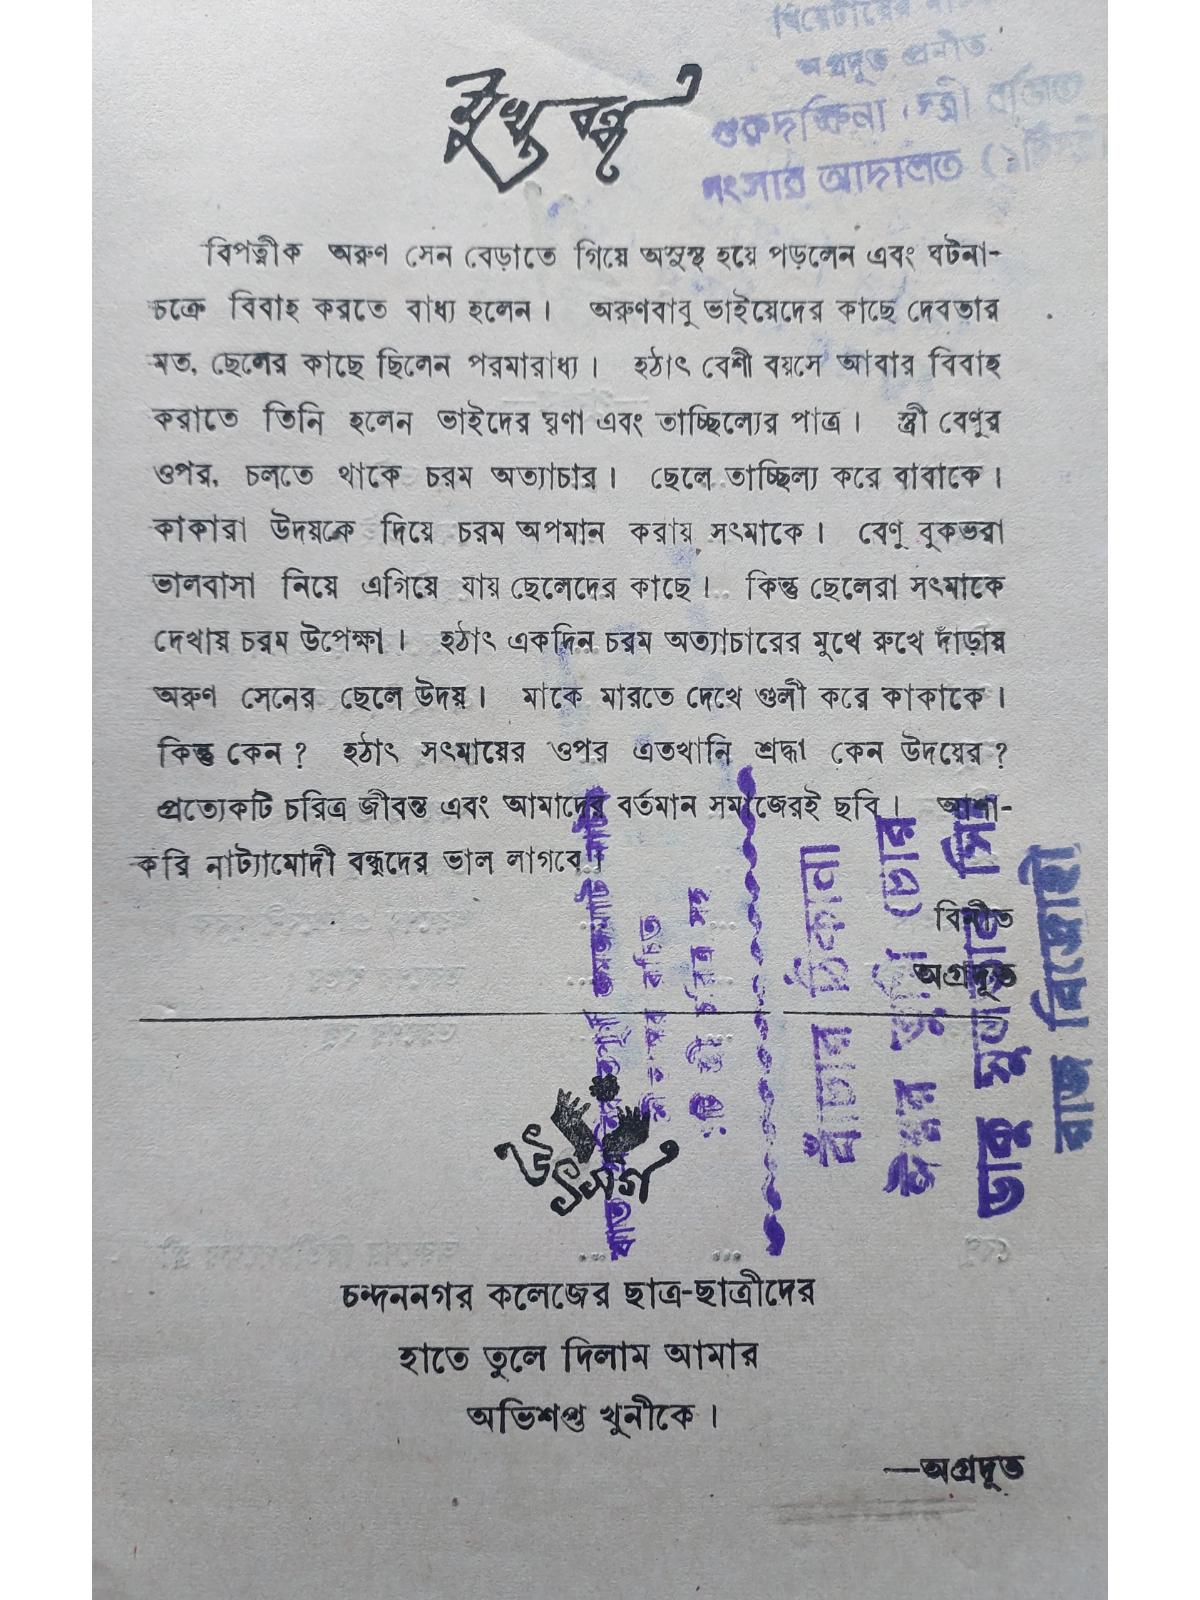 থিয়েটারের
অগ্রদূত প্রনীত
গুরুদক্ষিনা । স্ত্রী
সংসার আদালত
মুখবন্ধ
বিপত্নীক অরুণ সেন বেড়াতে গিয়ে অসুস্থ হয়ে পড়লেন এবং ঘটনা-
চক্রে বিবাহ করতে বাধ্য হলেন। অরুণবাবু ভাইয়েদের কাছে দেবতার
মত, ছেলের কাছে ছিলেন পরমারাধ্য। হঠাৎ বেশী বয়সে আবার বিবাহ
করাতে তিনি হলেন ভাইদের ঘৃণা এবং তাচ্ছিল্যের পাত্র। স্ত্রী বেণুর
ওপর, চলতে থাকে চরম অত্যাচার। ছেলে তাচ্ছিল্য করে বাবাকে।
কাকারা উদয়কে দিয়ে চরম অপমান করায় সৎমাকে। বেণু বুকভরা
ভালবাসা নিয়ে এগিয়ে যায় ছেলেদের কাছে। কিন্তু ছেলেরা সৎমাকে
দেখায় চরম উপেক্ষা। হঠাৎ একদিন চরম অত্যাচারের মুখে রুখে দাঁড়ায়
অরুণ সেনের ছেলে উদয়। মাকে মারতে দেখে গুলী করে কাকাকে।
কিন্তু কেন? হঠাৎ সৎমায়ের ওপর এতখানি শ্রদ্ধা কেন উদয়ের?
প্রত্যেকটি চরিত্র জীবন্ত এবং আমাদের বর্তমান সমাজেরই ছবি। আশা-
করি নাট্যামোদী বন্ধুদের ভাল লাগবে।
বিনীত
অগ্রদূত
রচিত
বাঁচার ঠিকানা
ঈশ্বর তুমি চোর
রাজ বিদ্রোহী
উৎসর্গ
চন্দননগর কলেজের ছাত্র-ছাত্রীদের
হাতে তুলে দিলাম আমার
অভিশপ্ত খুনীকে।
—অগ্রদূত